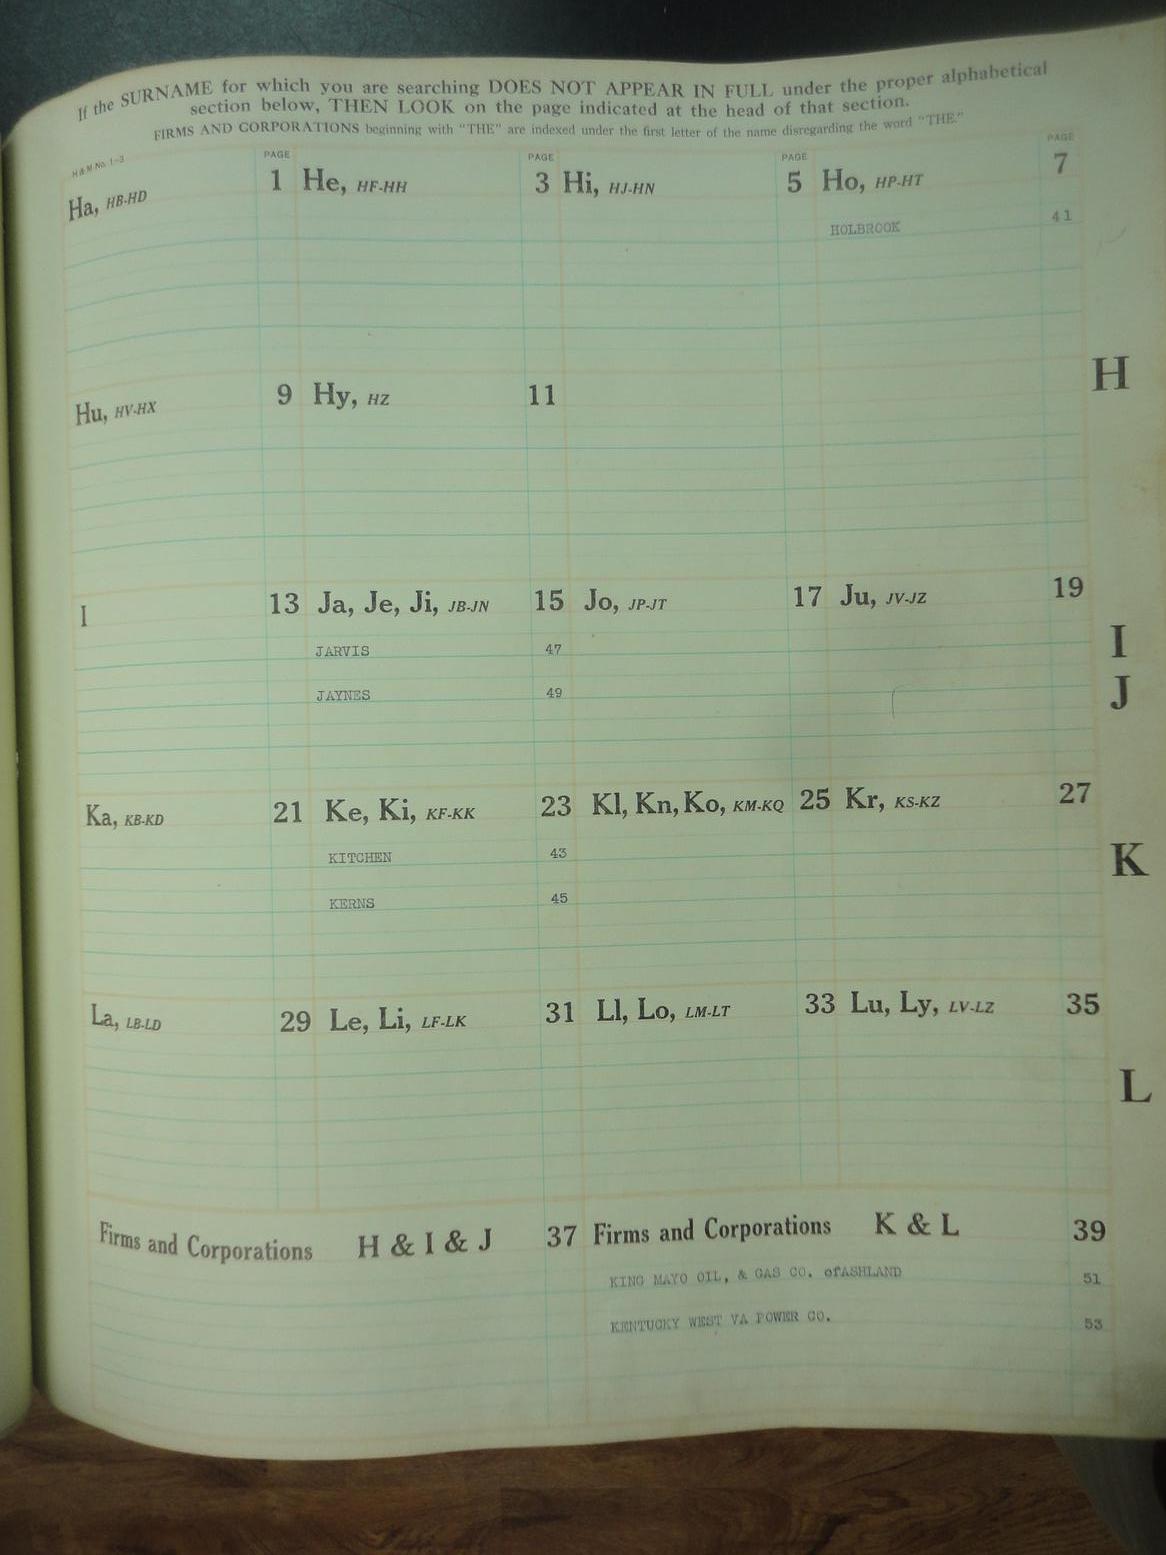 If the SURNAME for which you are searching DOES NOT APPEAR IN FULL under the proper alphabetical
section below, THEN LOOK on the page indicated at the head of that section.
FIRMS AND CORPORATIONS beginning with "THE" are indexed under the first letter of the name disregarding the word "THE."
H & M No. 1-3
PAGE PAGE PAGE PAGE
Ha, HB-HD 1 He, HF-HH 3 Hi, HJ-HN 5 Ho, HP-HT 7
HOLBROOK 41
H
Hu, HV-HX 9 Hy, HZ 11
I 13 Ja, Je, Ji, JB-JN 15 Jo, JP-JT 17 Ju, JV-JZ 19
JARVIS 47
I
JAYNES 49
J
Ka, KB-KD 21 Ke, Ki, KF-KK 23 Kl, Kn, Ko, KM-KQ 25 Kr, KS-KZ 27
KITCHEN 43
K
KERNS 45
La, LB-LD 29 Le, Li, LF-LK 31 Ll, Lo, LM-LT 33 Lu, Ly, LV-LZ 35
L
Firms and Corporations H & I & J 37 Firms and Corporations K & L 39
KING MAYO OIL, & GAS CO. ofASHLAND 51
KENTUCKY WEST VA POWER CO. 53